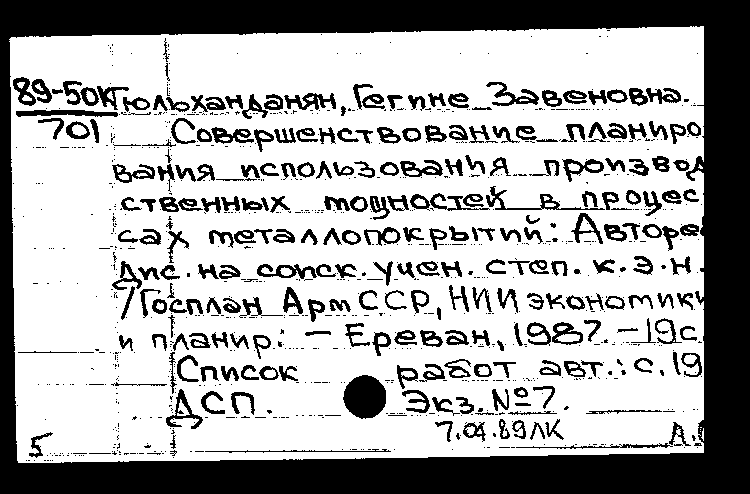 89-50к Гюльханданян, Гегине Завеновна.
701 Совершенствование планиро
вания использования производ
ственных мощностей в процес
сах металлопокрытий: Авторе
дис. на соиск. учен. степ. к.э.н.
/Госплан Арм ССР, НИИ экономики
и планир. - Ереван, 1987. - 19с
Список работ авт.: с. 19
ДСП. Экз. №7.
7.04.89ЛК
5